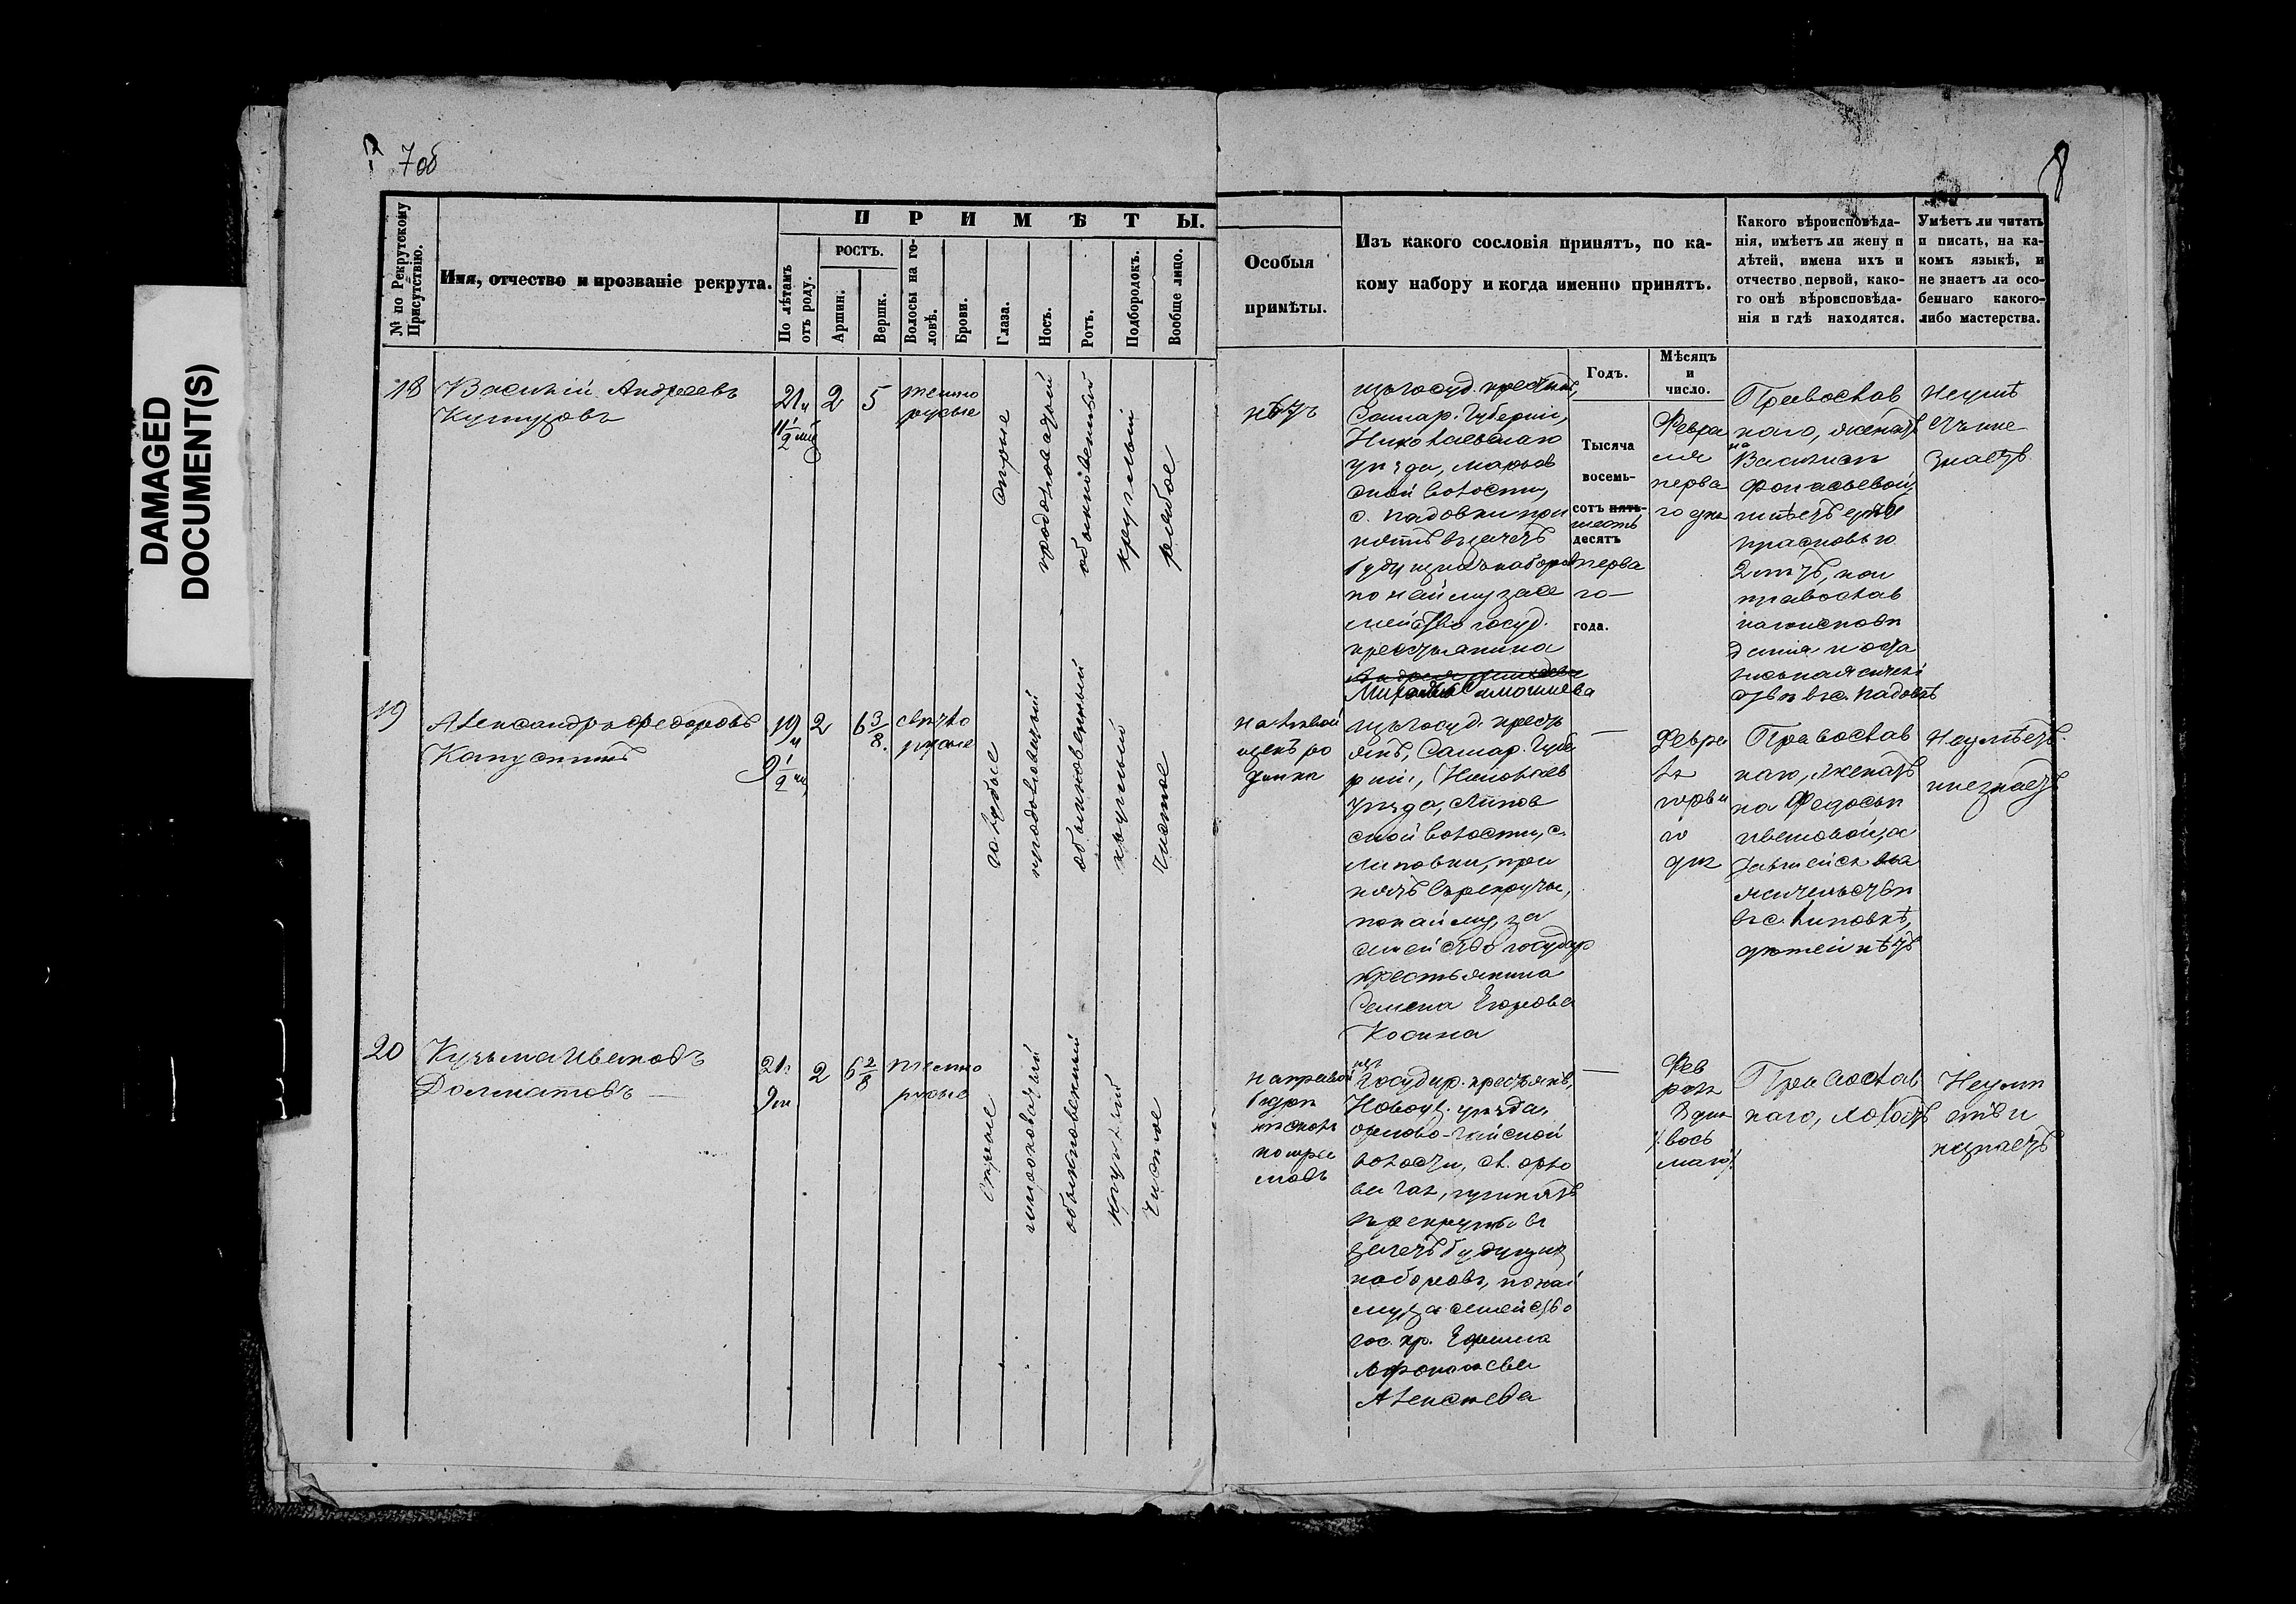 DAMAGED
DOCUMENT(S)
7 об
8
№ по Рекрутскому
Присутствію.
Имя, отчество и прозваніе рекрута.
ПРИМѢТЫ.
По лѣтамъ
отъ роду.
РОСТЪ.
Аршин.
Вершк.
Волосы на го-
ловѣ.
Брови.
Глаза.
Носъ.
Ротъ.
Подбородокъ.
Вообще лицо.
Особыя
примѣты.
Изъ какого сословія принятъ, по ка-
кому набору и когда именно принятъ.
Какого вѣроисповѣда-
нія, имѣетъ ли жену и
дѣтей, имена ихъ и
отчество первой, како-
го онѣ вѣроисповѣда-
нія и гдѣ находятся.
Умѣетъ ли читать
и писать, на ка-
комъ языкѣ, и
не знаетъ ли осо-
беннаго какого-
либо мастерства.
Годъ.
Мѣсяцъ
и
число.
18
Василій Андреевъ
Кутузовъ
21
11 1/2
2
5
темно
русые
сѣрые
продолговатый
обыкновенный
круглый
рябое
нѣтъ
изъ госуд. крестьянъ,
Самар. Губерніи,
Николаевскаго
уѣзда,
ской волости,
с. Падовки при
нятъ въ зачетъ
будущихъ наборовъ
по найму за се
мейство госуд.
крестьянина
Михаила
Тысяча
восемь-
сотъ пять-
шесть
десятъ
перва
го
года.
Февра
ля
перва
го дня
Православ
наго, женатъ
на
Василисѣ
Фонасьевой,
имѣетъ дочь
Прасковью
2 лѣтъ, кои
православ
наго исповѣ
данія и оста
лись на житель
ствѣ въ с. Падовкѣ
Неумѣ
етъ и не
знаетъ
19
Александръ Федоровъ
Капустинъ
19
9 1/2
2
6 3/8
свѣтло
русые
голубые
продолговатый
обыкновенный
круглый
чистое
на лѣвой
щекѣ ро
динка
изъ госуд. кресть
янъ, Самар. Губе
рніи, Николаев
уѣзда, Липов
ской волости, с.
Липовки, при
нятъ въ рекруты,
по найму, за
семейство государ
крестьянина
Семена Егорова
Косина
Февра
ля
перва
го
дня
Православ
наго, женатъ
на Федосьѣ
Ивановой, о
ставшейся на
жительствѣ
въ с. Липовкѣ,
дѣтей нѣтъ
Неумѣетъ
и незнаетъ
20
Кузьма Ивановъ
Долматовъ
21
9
2
6 2/8
темно
русые
сѣрые
широковатый
обыкновенный
круглый
чистое
на правой
бедрѣ
нѣсколь
ко шра
мовъ
изъ
Государ. крестьянъ,
Новоуз. уѣзда,
Орлово-Гайской
волости, сл. Орло
ва Гая, принятъ
въ рекруты въ
зачетъ будущихъ
наборовъ, по най
му за семейство
гос. кр. Ефима
Афонасьева
Алексѣева
Фев
раля
8 дня
/вось
маго/
Православ
наго, холостъ
Неумѣ
етъ и
незнаетъ